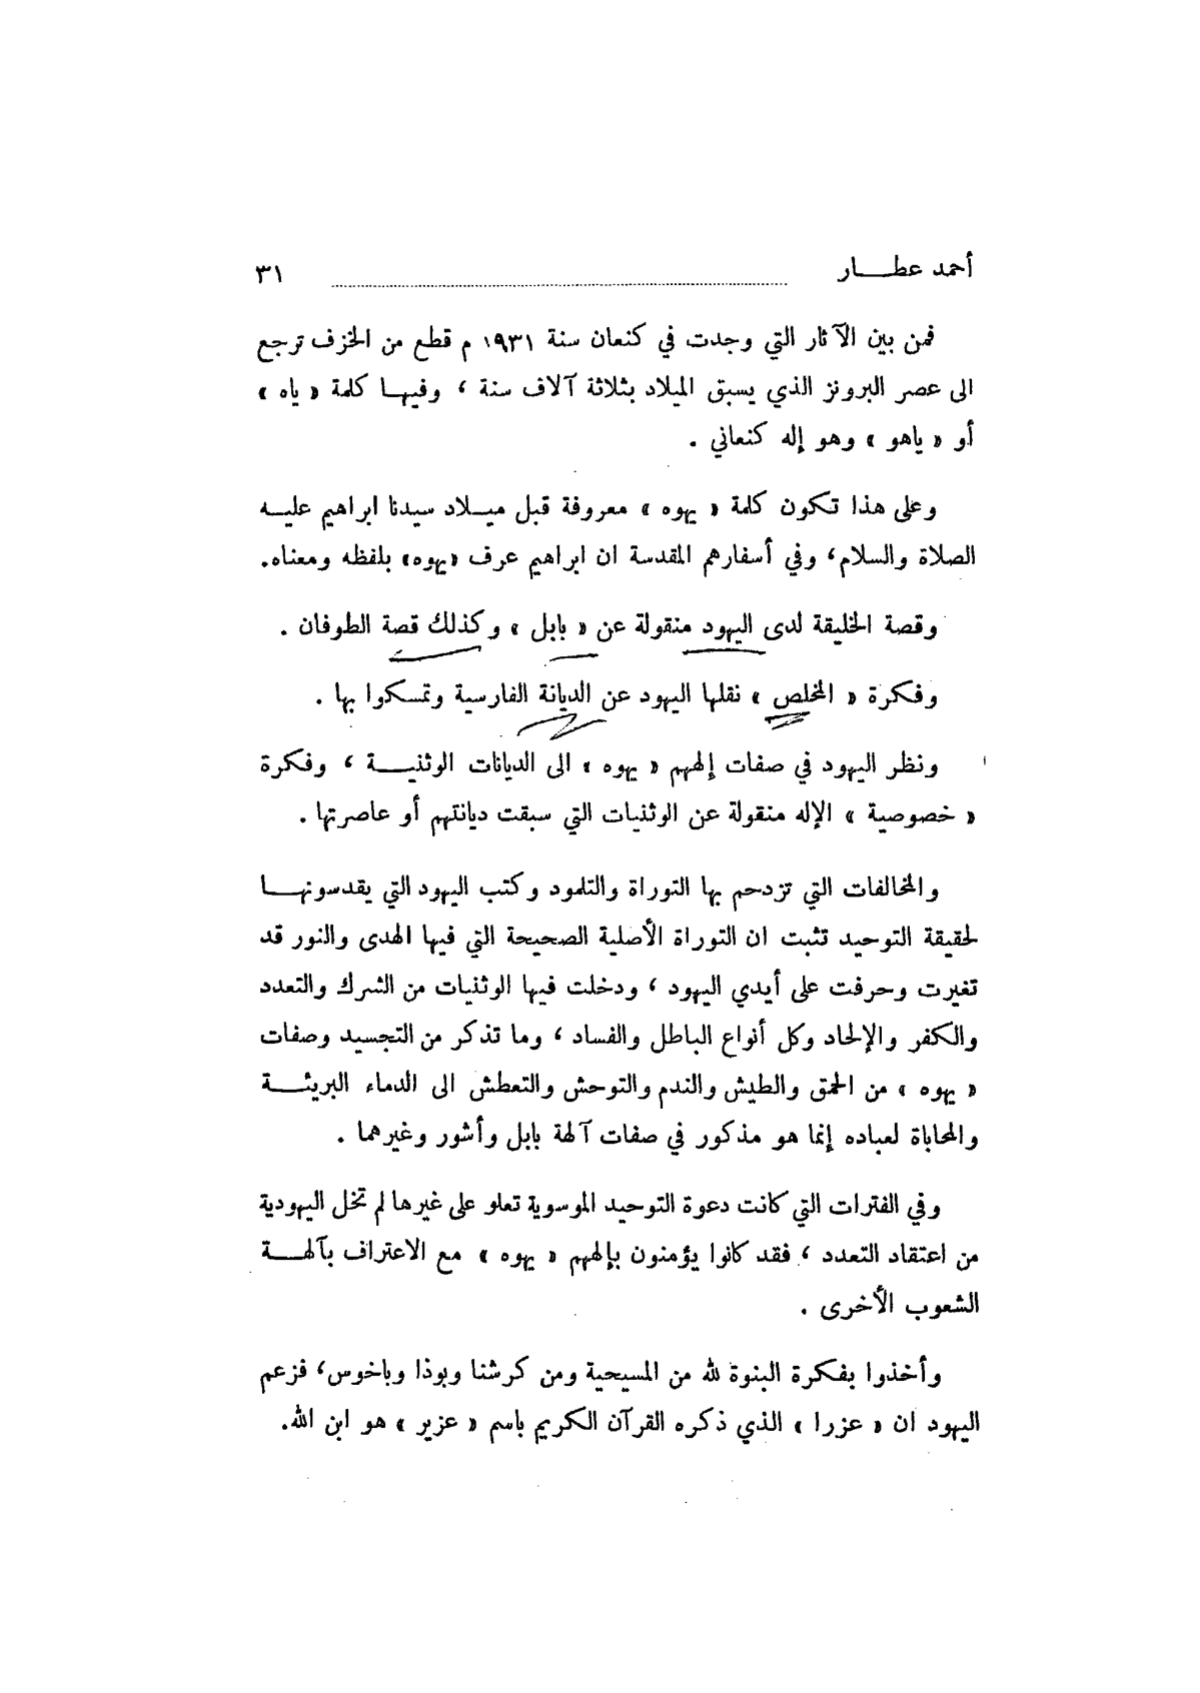 أحمد عطـــار ٣١
فمن بين الآثار التي وجدت في كنعان سنة ١٩٣١ م قطع من الخزف ترجع
الى عصر البرونز الذي يسبق الميلاد بثلاثة آلاف سنة ، وفيهـا كلمة « ياه »
أو « ياهو » وهو إله كنعاني .
وعلى هذا تكون كلمة « يهوه » معروفة قبل ميـلاد سيدنا ابراهيم عليـه
الصلاة والسلام، وفي أسفارهم المقدسة ان ابراهيم عرف «يهوه» بلفظه ومعناه.
وقصة الخليقة لدى اليهود منقولة عن « بابل » وكذلك قصة الطوفان .
وفكرة « المخلص » نقلها اليهود عن الديانة الفارسية وتمسكوا بها .
ونظر اليهود في صفات إلههم « يهوه » الى الديانات الوثنيـــة ، وفكرة
« خصوصية » الإله منقولة عن الوثنيات التي سبقت ديانتهم أو عاصرتها .
والمخالفات التي تزدحم بها التوراة والتلمود وكتب اليهود التي يقدسونهـــا
لحقيقة التوحيد تثبت ان التوراة الأصلية الصحيحة التي فيها الهدى والنور قد
تغيرت وحرفت على أيدي اليهود ، ودخلت فيها الوثنيات من الشرك والتعدد
والكفر والإلحاد وكل أنواع الباطل والفساد ، وما تذكر من التجسيد وصفات
« يهوه » من الحمق والطيش والندم والتوحش والتعطش الى الدماء البريئـــة
والمحاباة لعباده إنما هو مذكور في صفات آلهة بابل وأشور وغيرهما .
وفي الفترات التي كانت دعوة التوحيد الموسوية تعلو على غيرها لم تخل اليهودية
من اعتقاد التعدد ، فقد كانوا يؤمنون بإلههم « يهوه » مع الاعتراف بآلهـــة
الشعوب الأخرى .
وأخذوا بفكرة البنوة لله من المسيحية ومن كرشنا وبوذا وباخوس، فزعم
اليهود ان « عزرا » الذي ذكره القرآن الكريم باسم « عزير » هو ابن الله.